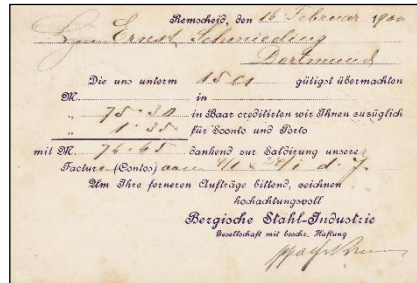 Remscheid, den 15 Februar 1900
Herrn Ernst Schmieding
Dortmund
Die uns unterm 15 ct gütigst übermachten
M. in
„ 75.30 in Baar creditirten wir Ihnen zuzüglich
„ 1.35 für Sconto und Porto
mit M. 76.65 dankend zur Saldirung unserer
Factura (Contos) vom 4/1 & 24/1 d. J.
Um Ihre ferneren Aufträge bittend, zeichnen
hochachtungsvoll
Bergische Stahl-Industrie
Gesellschaft mit beschr. Haftung